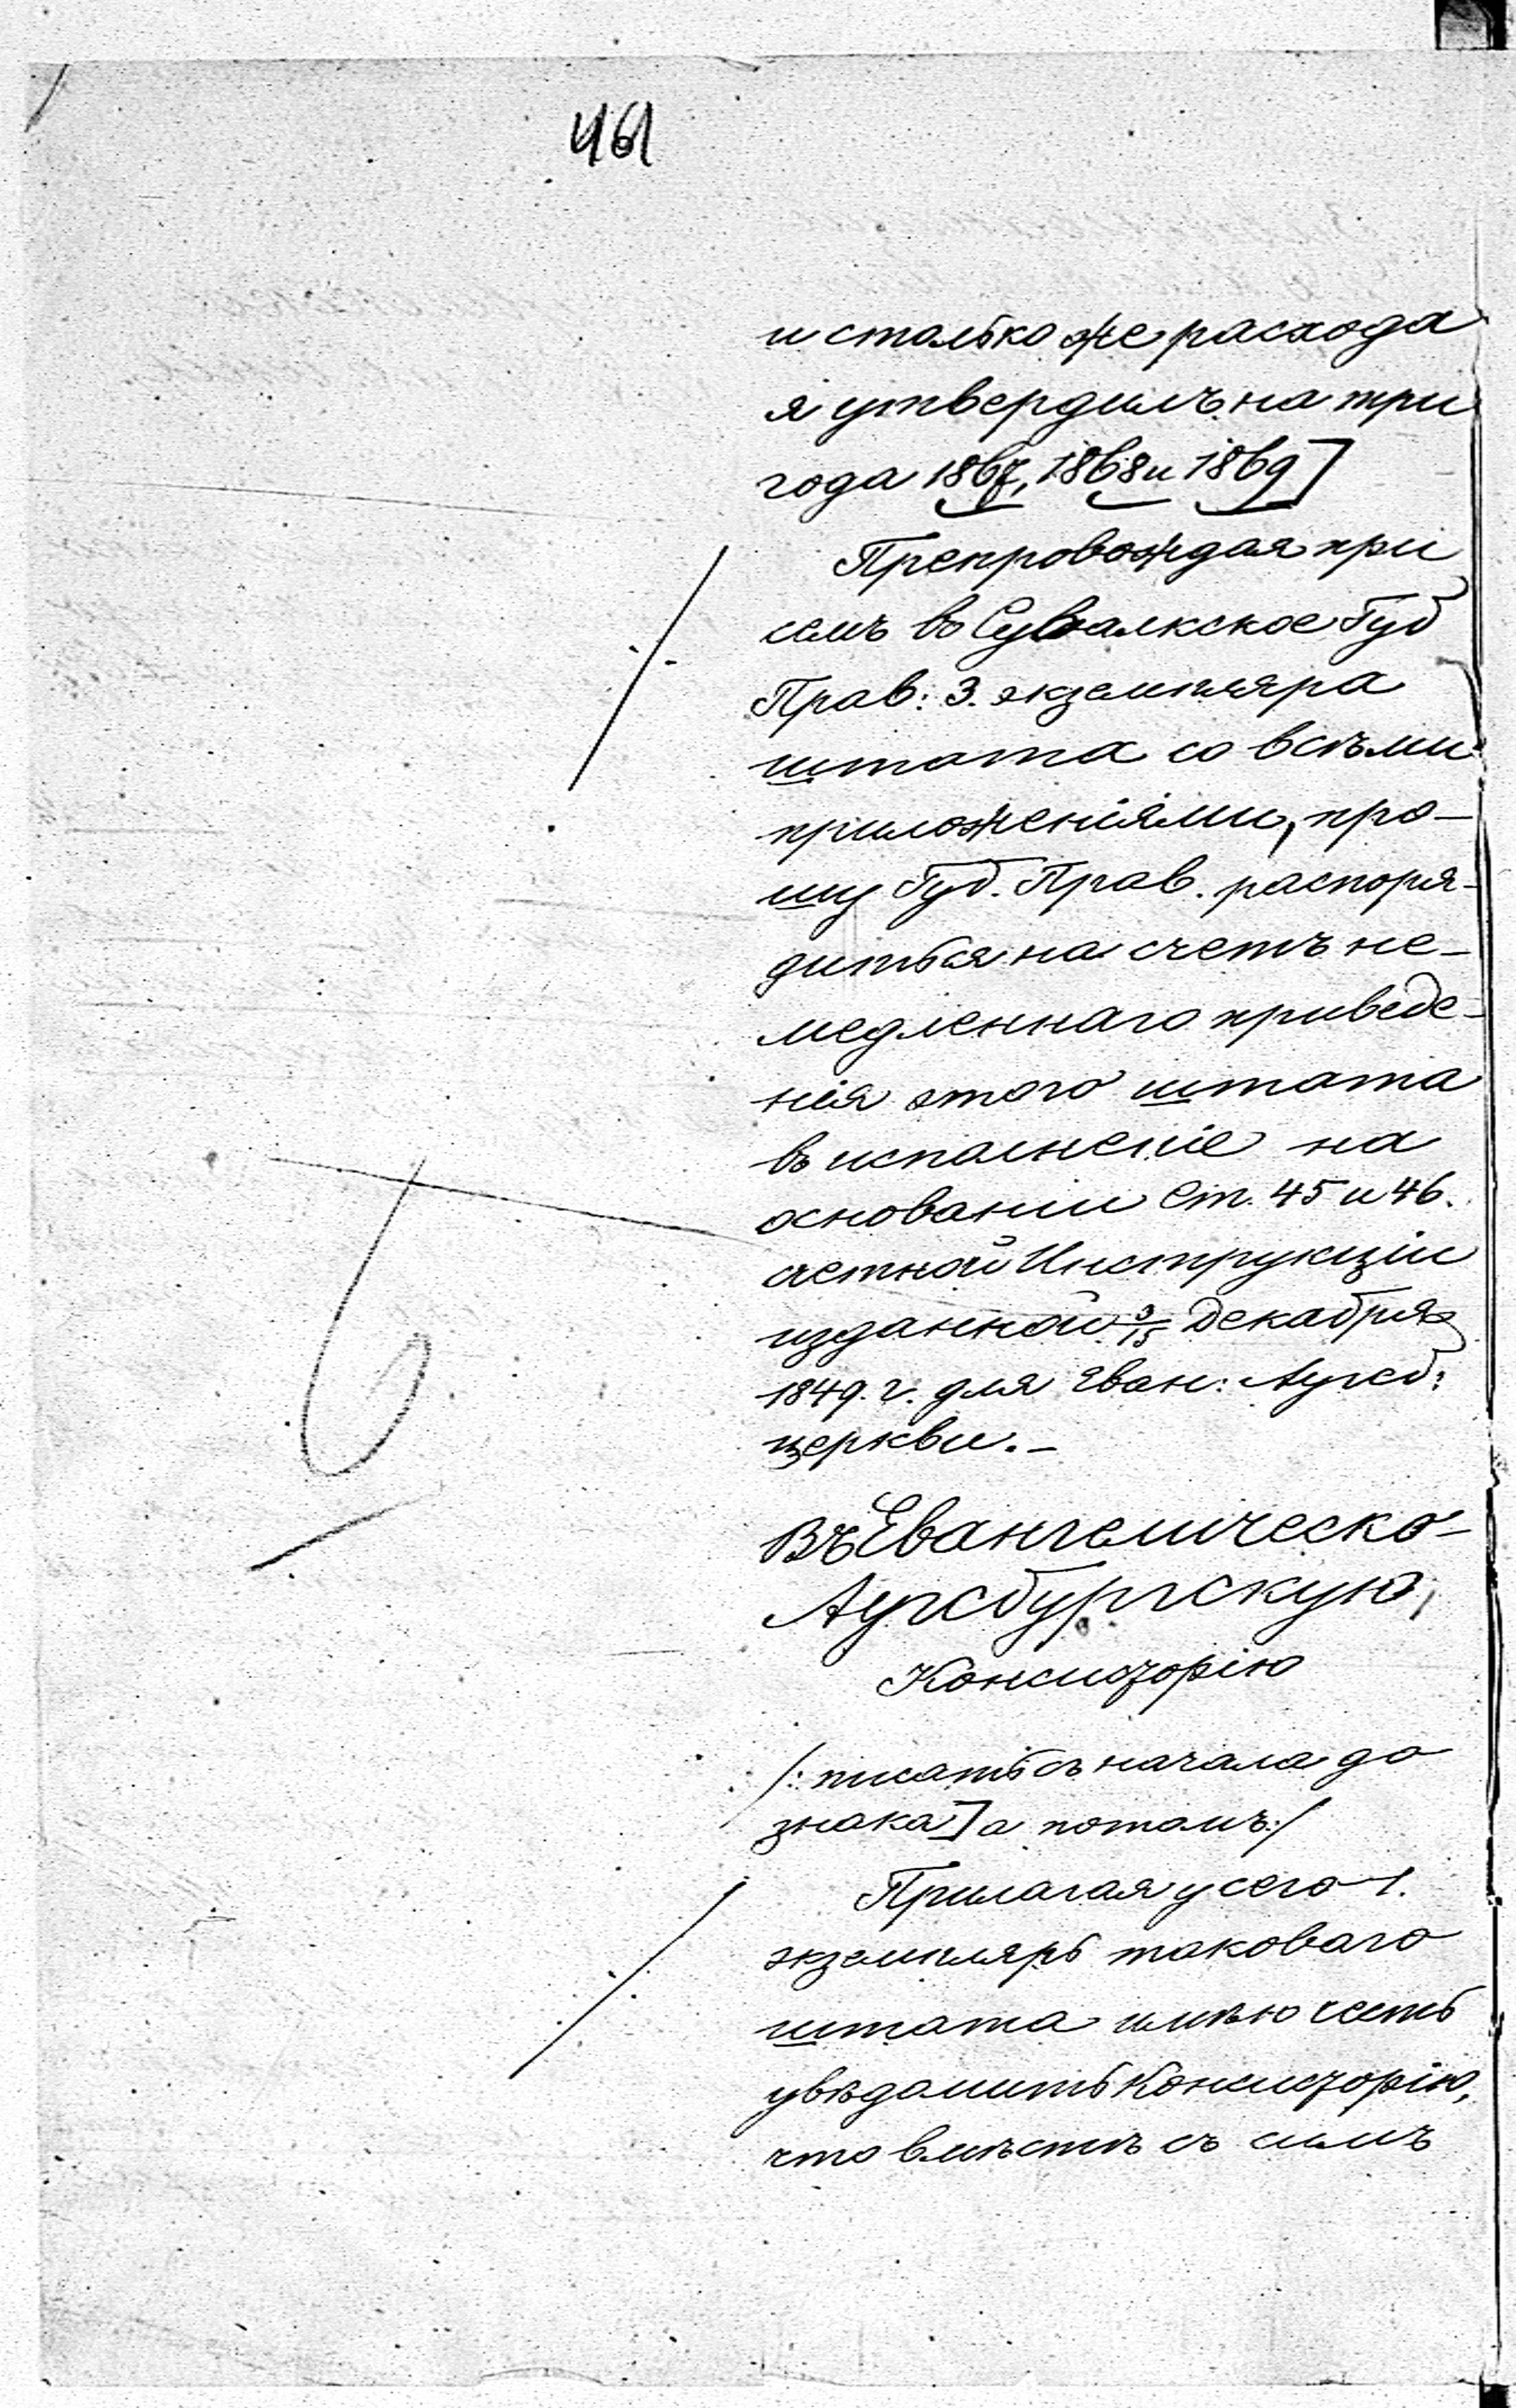 461
и столько же расхода
я утвердилъ на три
года 1867, 1868 и 1869]
Препровождая при
семъ въ Сувалкское Губ
Прав: 3. экземпляра
штата со всѣми
приложеніями, про-
шу Губ. Прав. распоря-
диться на счетъ не-
медленнаго приведе-
нія этого штата
въ исполненіе на
основаніи Ст. 45 и 46.
счетной Инструкціи
изданной 3/15 Декабря
1849. г. для Еван: Аугсб:
церкви.-
Въ Евангелическо-
Аугсбургскую
Консисторію
/: писать съ начала до
знака] а потомъ:/
Прилагая у сего 1.
экземпляръ таковаго
штата имѣю честь
увѣдомить Консисторію,
что вмѣстѣ съ симъ